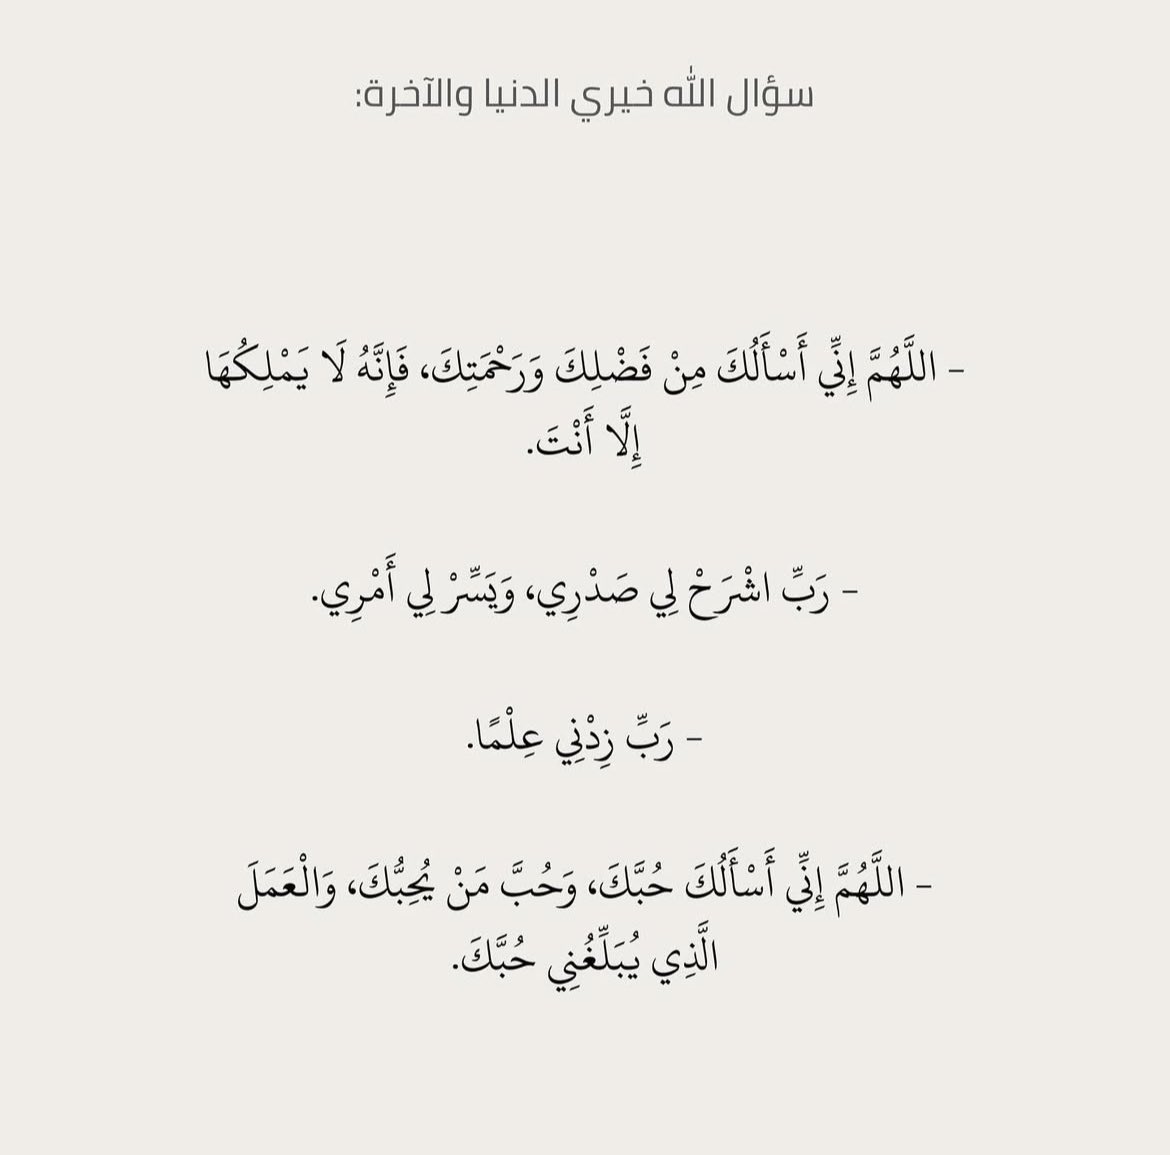 سؤال الله خيري الدنيا والآخرة:
– اللَّهُمَّ إِنِّي أَسْأَلُكَ مِنْ فَضْلِكَ وَرَحْمَتِكَ، فَإِنَّهُ لَا يَمْلِكُهَا
إِلَّا أَنْتَ.
– رَبِّ اشْرَحْ لِي صَدْرِي، وَيَسِّرْ لِي أَمْرِي.
– رَبِّ زِدْنِي عِلْمًا.
– اللَّهُمَّ إِنِّي أَسْأَلُكَ حُبَّكَ، وَحُبَّ مَنْ يُحِبُّكَ، وَالْعَمَلَ
الَّذِي يُبَلِّغُنِي حُبَّكَ.